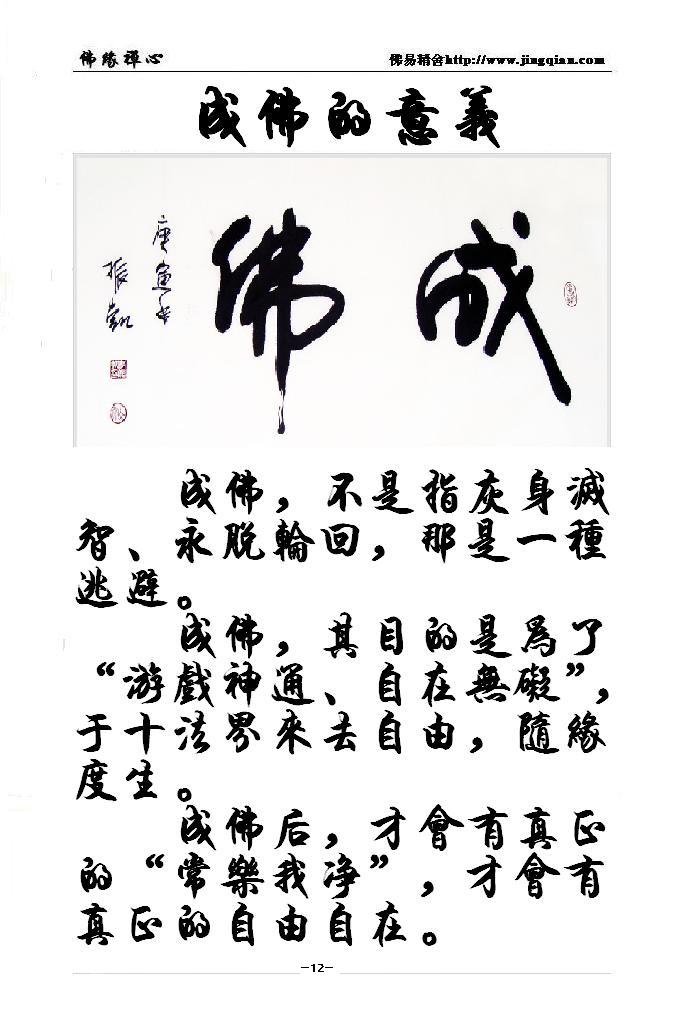 佛緣禪心
佛易精舍http://www.jingqian.com
成佛的意義
成佛
庚寅年
振凱
成佛，不是指灰身滅
智、永脫輪回，那是一種
逃避。
成佛，其目的是為了
“游戲神通、自在無礙”，
于十法界來去自由，隨緣
度生。
成佛后，才會有真正
的“常樂我净”，才會有
真正的自由自在。
-12-